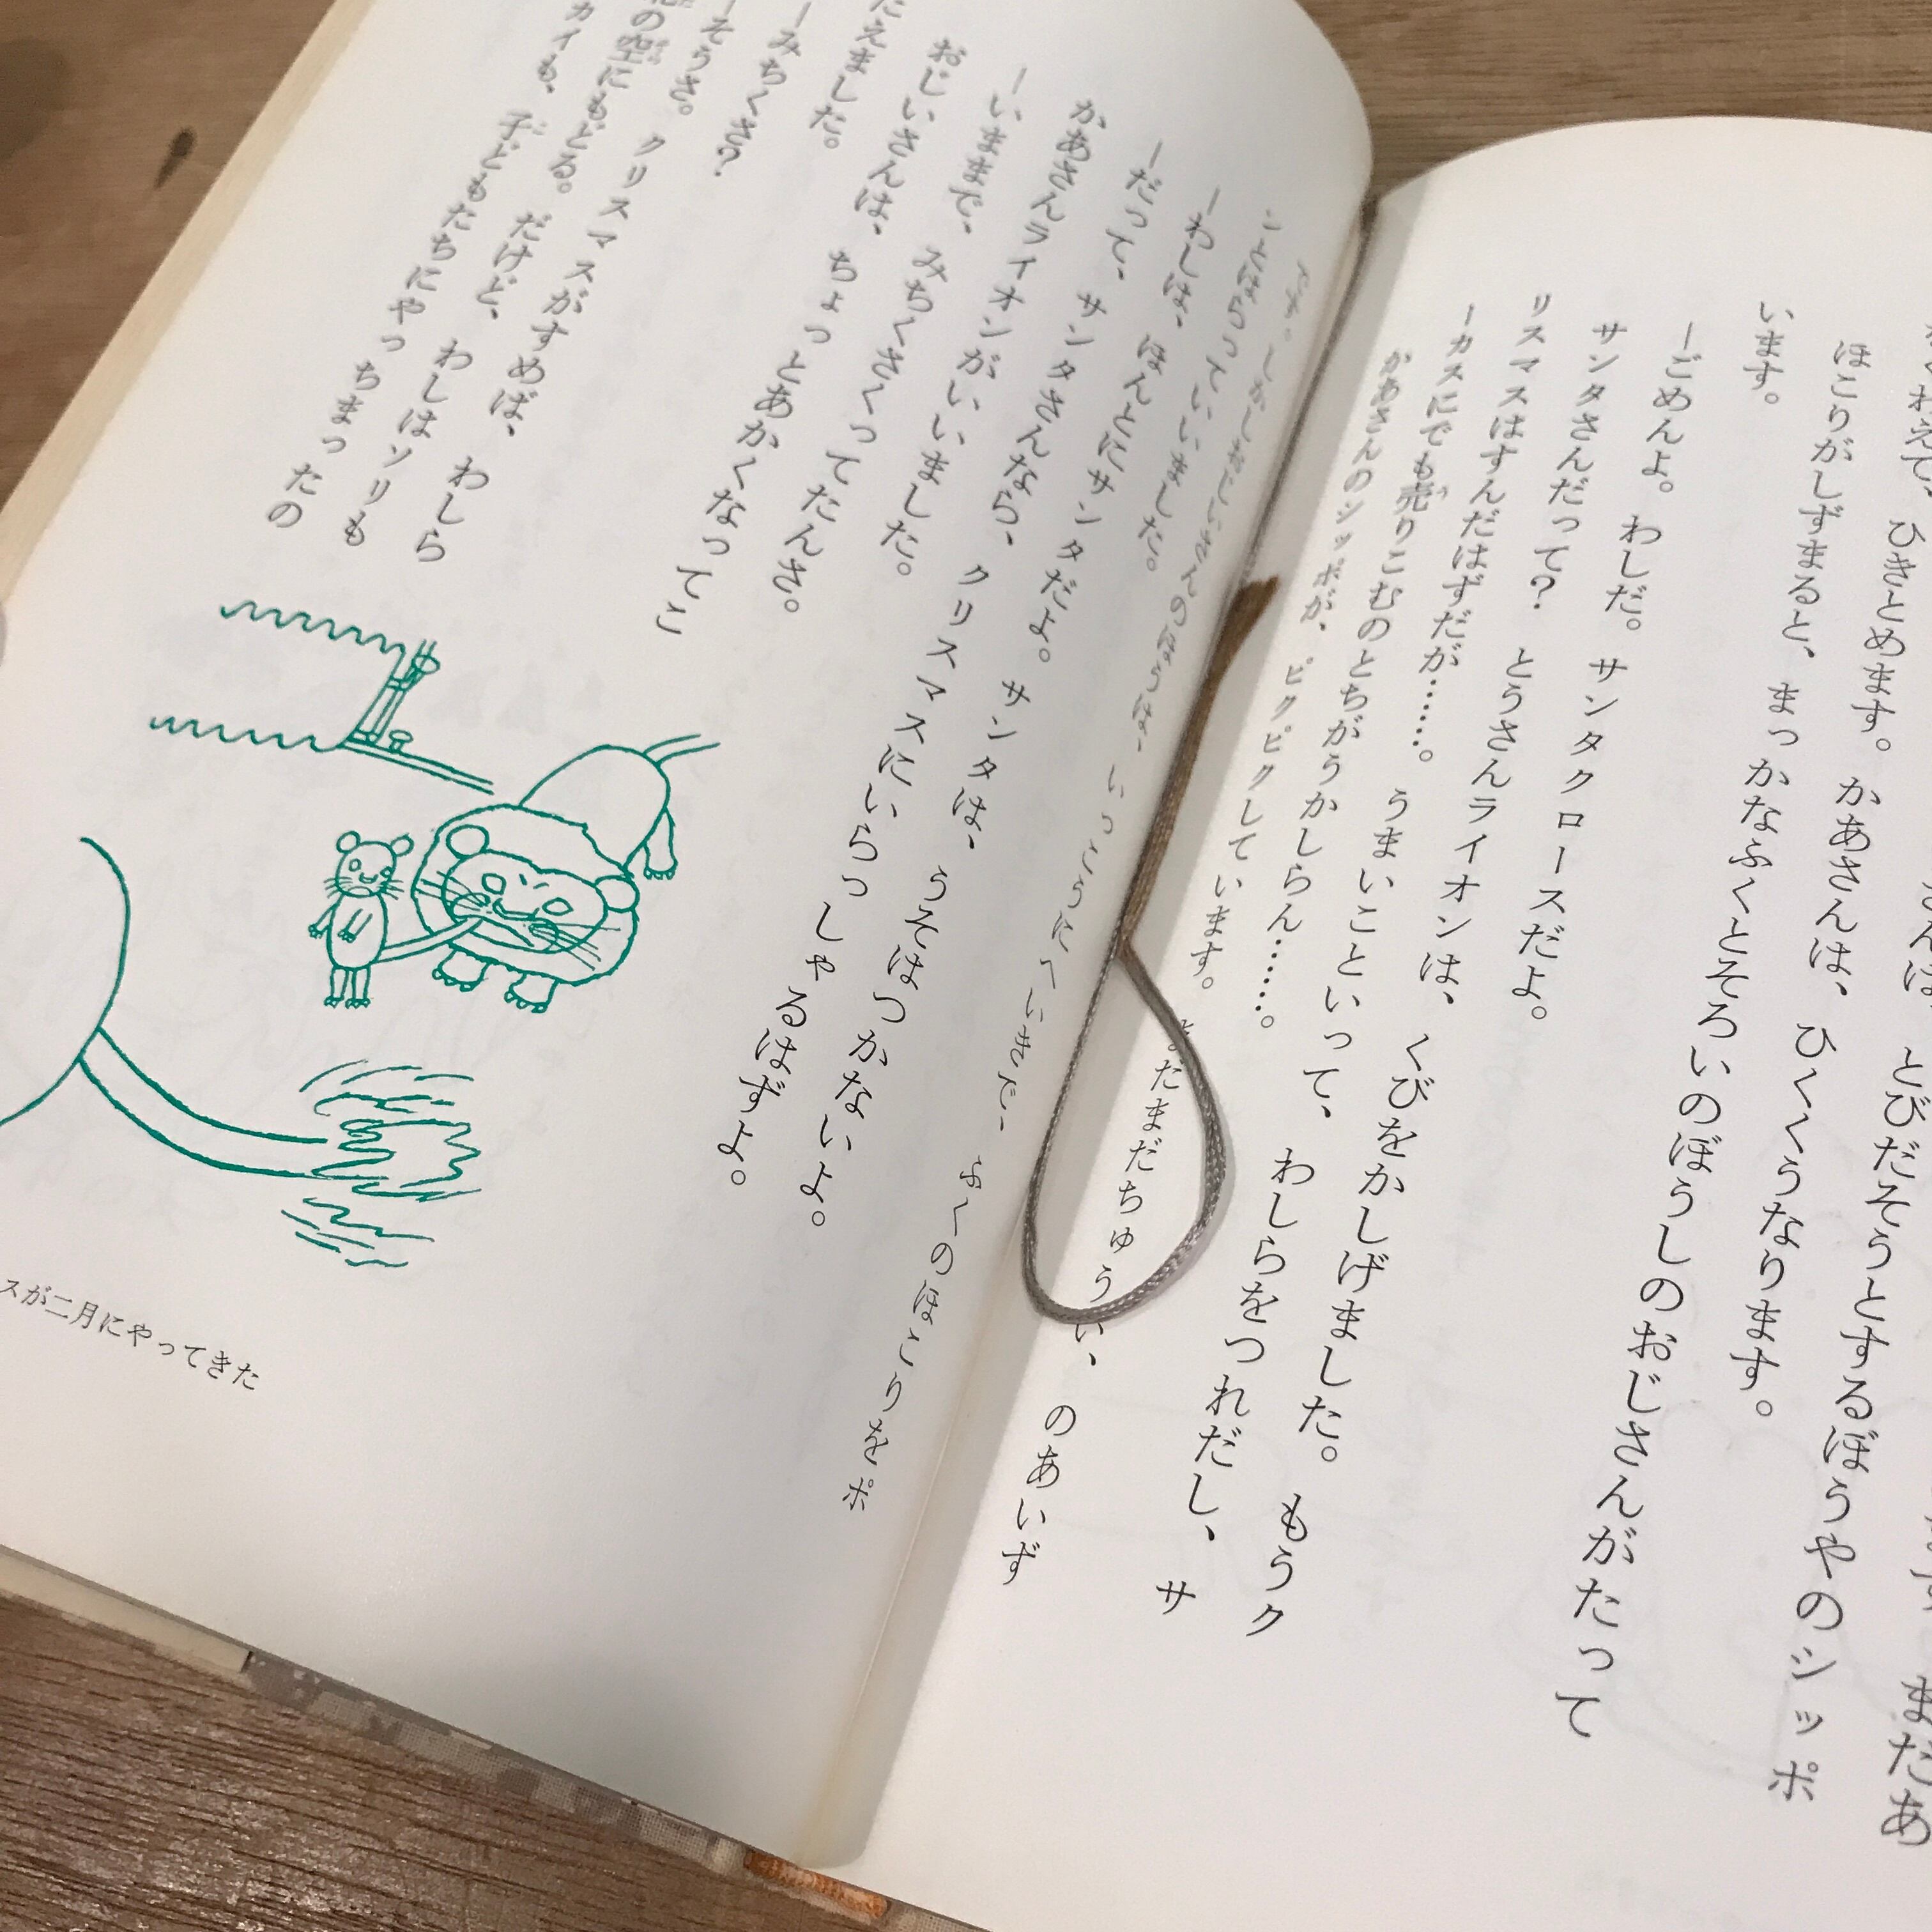 ひきとめます。かあさんは、ひくくうなります。
とびだそうとするぼうやのシッポ
まだあ
ほこりがしずまると、まっかなふくとそろいのぼうしのおじさんがたって
います。
―ごめんよ。わしだ。サンタクロースだよ。
サンタさんだって? とうさんライオンは、くびをかしげました。もうク
リスマスはすんだはずだが……。うまいこといって、わしらをつれだし、サ
ーカスにでも売りこむのとちがうかしらん……。
かあさんのシッポが、ピクピクしています。
まだちゅうい、のあいず
です。しかしおじいさんのほうは、いっこうにへいきで、ふくのほこりをポ
ンとはらっていいました。
―わしは、ほんとにサンタだよ。サンタは、うそはつかないよ。
―だって、サンタさんなら、クリスマスにいらっしゃるはずよ。
かあさんライオンがいいました。
―いままで、みちくさくってたんさ。
おじいさんは、ちょっとあかくなってこ
たえました。
―みちくさ?
―そうさ。クリスマスがすめば、わしら
の空にもどる。だけど、わしはソリも
カイも、子どもたちにやっちまったの
スが二月にやってきた